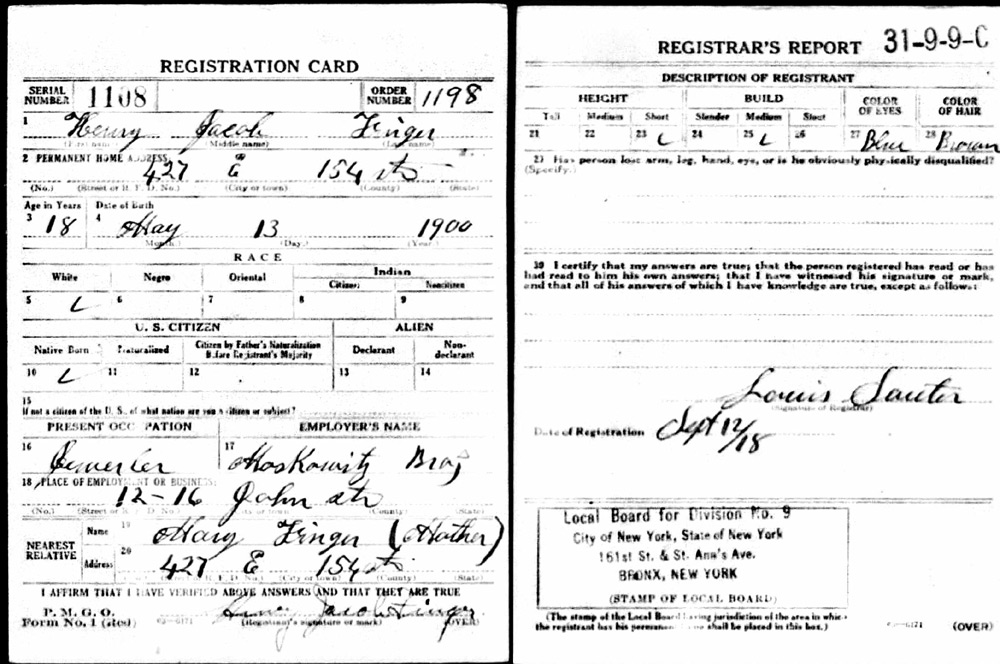 REGISTRATION CARD
SERIAL NUMBER 1108 ORDER NUMBER 1198
1 Henry Jacob Finger
(First name) (Middle name) (Last name)
2 PERMANENT HOME ADDRESS
427 E 154 str
(No.) (Street or R. F. D. No.) (City or town) (County) (State)
Age in Years Date of Birth
3 18 4 May 13 1900
(Month.) (Day.) (Year.)
RACE
White Negro Oriental Indian
Citizen Noncitizen
5 6 7 8 9
U. S. CITIZEN ALIEN
Native Born Naturalized Citizen by Father's Naturalization Before Registrant's Majority Declarant Non-declarant
10 11 12 13 14
15
If not a citizen of the U. S., of what nation are you a citizen or subject?
PRESENT OCCUPATION EMPLOYER'S NAME
16 Jeweler 17 Moskowitz Bros
18 PLACE OF EMPLOYMENT OR BUSINESS:
12-16 John str
(No.) (Street or R. F. D. No.) (City or town) (County) (State)
NEAREST RELATIVE Name 19 Mary Finger (Mother)
Address 20 427 E 154 str
(No.) (Street or R. F. D. No.) (City or town) (County) (State)
I AFFIRM THAT I HAVE VERIFIED ABOVE ANSWERS AND THAT THEY ARE TRUE
P. M. G. O.
Form No. 1 (Red) Henry Jacob Finger
(Registrant's signature or mark) (OVER)
REGISTRAR'S REPORT 31-9-9-C
DESCRIPTION OF REGISTRANT
HEIGHT BUILD COLOR OF EYES COLOR OF HAIR
Tall Medium Short Slender Medium Stout
21 22 23 24 25 26 27 Blue 28 Brown
29 Has person lost arm, leg, hand, eye, or is he obviously physically disqualified?
(Specify.)
30 I certify that my answers are true; that the person registered has read or has
had read to him his own answers; that I have witnessed his signature or mark,
and that all of his answers of which I have knowledge are true, except as follows:
Louis Sauter
(Signature of Registrar)
Date of Registration Sept 12/18
Local Board for Division No. 9
City of New York, State of New York
161st St. & St. Ann's Ave.
BRONX, NEW YORK
(STAMP OF LOCAL BOARD)
(The stamp of the Local Board having jurisdiction of the area in which
the registrant has his permanent home shall be placed in this box.)
(OVER)